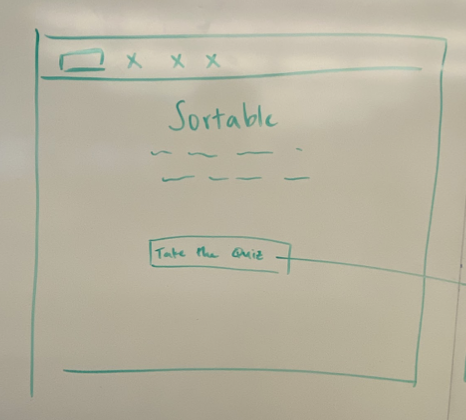 x x x
Sortable
Take the Quiz